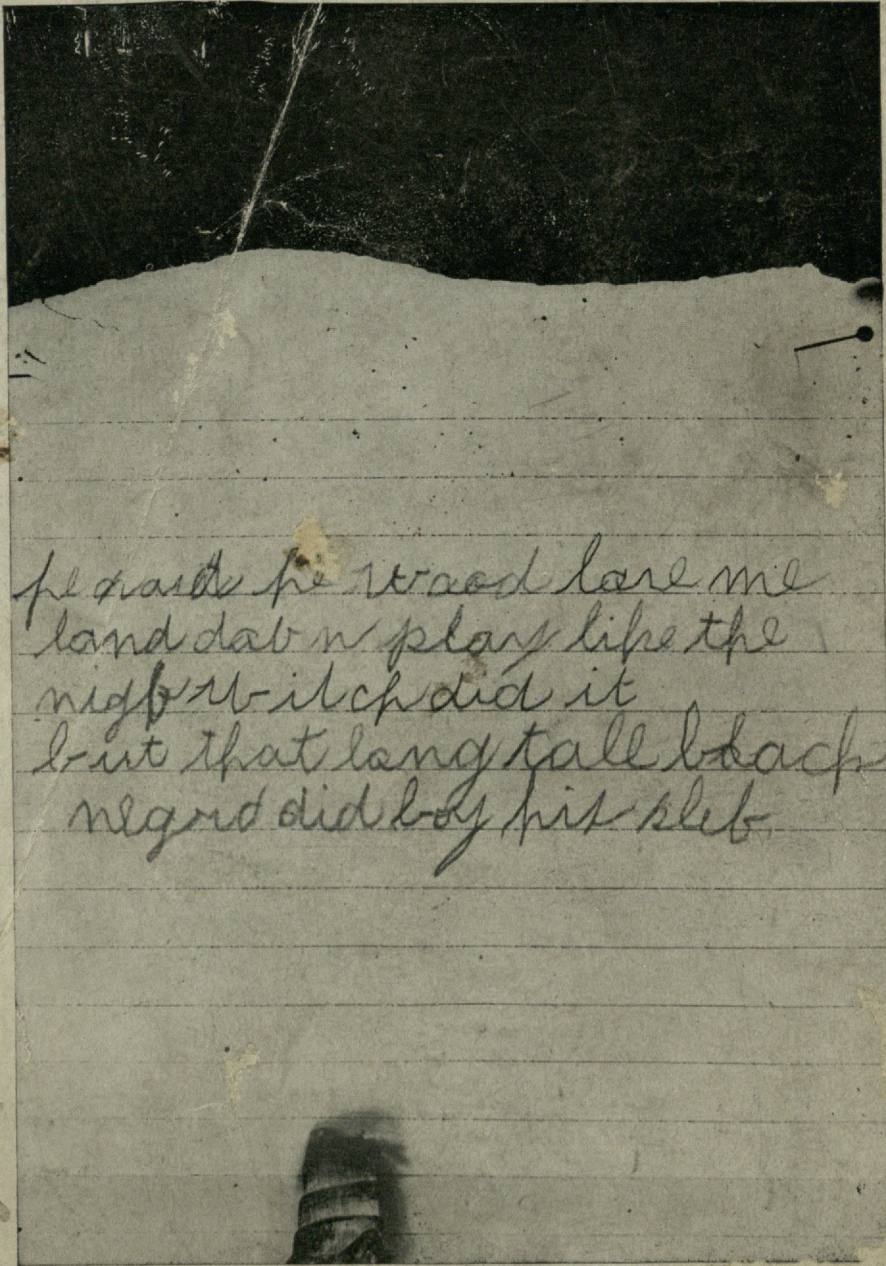 he said he wood love me
land dab n play like the
night witch did it
but that long tall black
negro did boy his slef